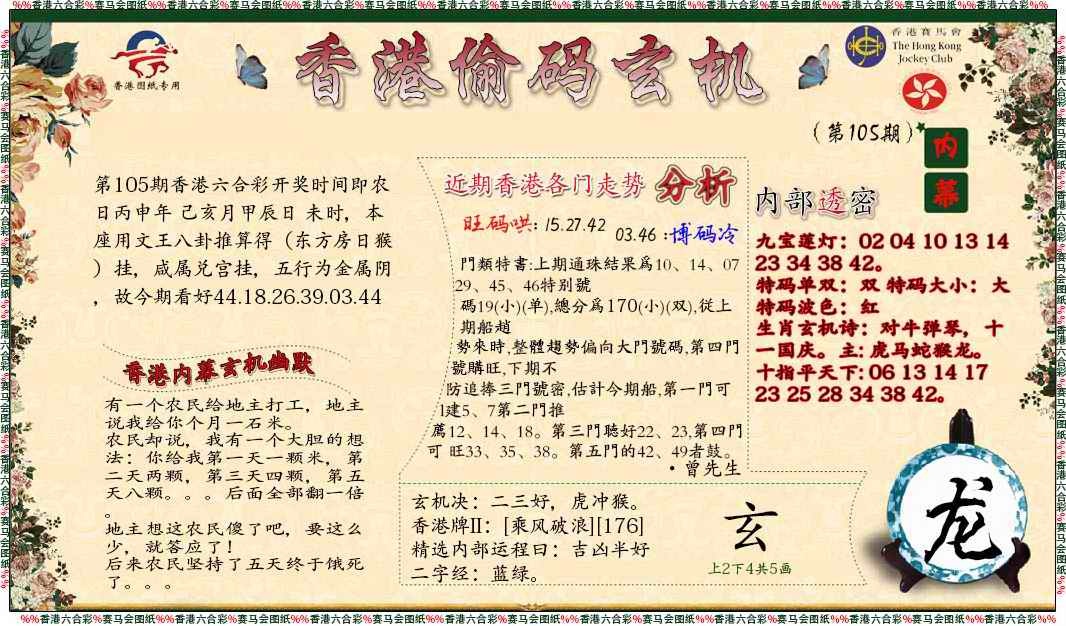 %%香港六合彩%赛马会图纸%%香港六合彩%赛马会图纸%%香港六合彩%赛马会图纸%%香港六合彩%赛马会图纸%%香港六合彩%赛马会图纸%%香港六合彩%赛马会图纸%%香港六合彩%赛马会图纸%%香港六合彩%%
香港图纸专用
香港偷码玄机
香港賽馬會
The Hong Kong
Jockey Club
(第105期)
内幕
第105期香港六合彩开奖时间即农
日丙申年 己亥月甲辰日 未时，本
座用文王八卦推算得（东方房日猴
）挂，咸属兑宫挂，五行为金属阴
，故今期看好44.18.26.39.03.44
香港内幕玄机幽默
有一个农民给地主打工，地主
说我给你个月一石米。
农民却说，我有一个大胆的想
法：你给我第一天一颗米，第
二天两颗，第三天四颗，第五
天八颗。。。后面全部翻一倍
。
地主想这农民傻了吧，要这么
少，就答应了！
后来农民坚持了五天终于饿死
了。。。
近期香港各门走势 分析
旺码哄: 15.27.42
03.46 :博码冷
門類特書:上期通珠結果爲10、14、07
29、45、46特别號
碼19(小)(单),總分爲170(小)(双),從上
期船趙
勢來時,整體趨勢偏向大門號碼,第四門
號購旺,下期不
防追捧三門號密,估計今期船,第一門可
1建5、7第二門推
薦12、14、18。第三門聽好22、23,第四門
可 旺33、35、38。第五門的42、49者鼓。
·曾先生
玄机决：二三好，虎冲猴。
香港牌II：[乘风破浪][176]
精选内部运程曰：吉凶半好
二字经：蓝绿。
玄
上2下4共5画
内部透密
九宝莲灯：02 04 10 13 14
23 34 38 42。
特码单双：双 特码大小：大
特码波色：红
生肖玄机诗：对牛弹琴，十
一国庆。主: 虎马蛇猴龙。
十指平天下: 06 13 14 17
23 25 28 34 38 42。
龙
%%香港六合彩%赛马会图纸%%香港六合彩%赛马会图纸%%香港六合彩%赛马会图纸%%香港六合彩%赛马会图纸%%香港六合彩%赛马会图纸%%香港六合彩%赛马会图纸%%香港六合彩%赛马会图纸%%香港六合彩%%